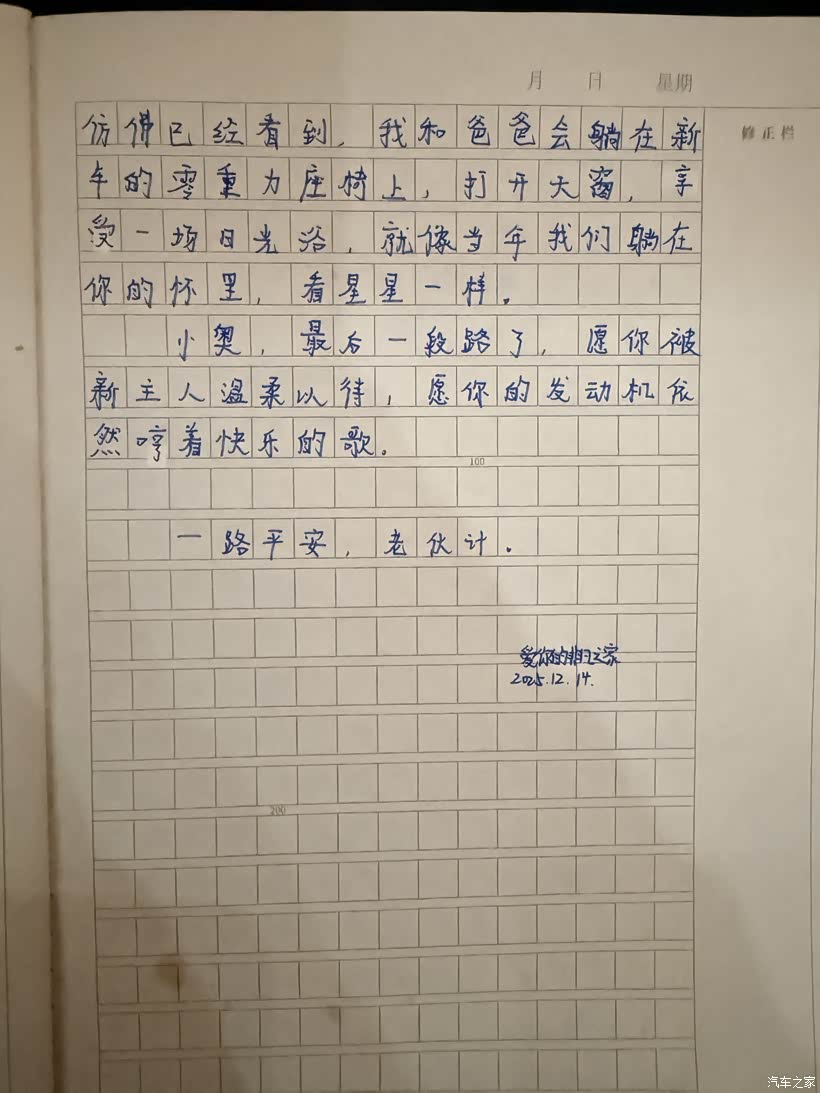 月 日 星期
修正栏
仿佛已经看到，我和爸爸会躺在新
车的零重力座椅上，打开天窗，享
受一场日光浴，就像当年我们躺在
你的怀里，看星星一样。
小奥，最后一段路了，愿你被
新主人温柔以待，愿你的发动机依
然哼着快乐的歌。
100
一路平安，老伙计。
爱你的 之家
2025.12.14.
200
汽车之家